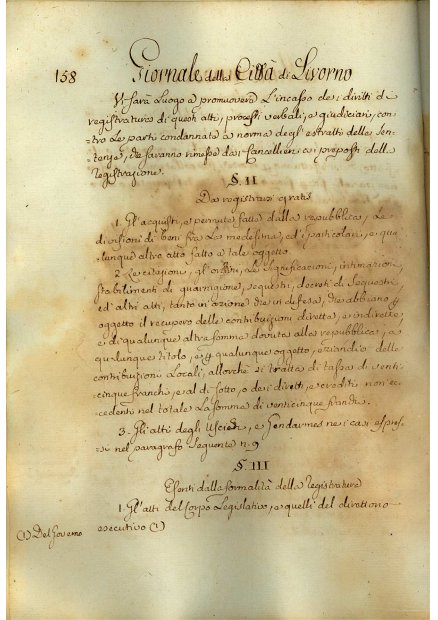 158 Giornale della Città di Livorno
Vi sarà luogo a promuovere l'incasso dei diritti di
registratura di questi atti, processi verbali, e giudiciari, con-
-tro le parti condannate a norma degl'estratti delle Sen-
-tenze, che saranno rimesse dai Cancellieri ai preposti della
Registrazione.
§. II
Da registrarsi gratis
1. Gl'acquisti, e permute fatte dalla repubblica, le
divisioni di beni fra la medesima, ed i particolari, e qua
-lunque altro atto fatto a tale oggetto.
2. Le citazioni, gl'ordini, le Significazioni, intimazioni,
stabilimenti di guarnigione, sequestri, decreti di Sequestri
ed altri atti, tanto in azione che in difesa, che abbiano p
oggetto il recupero delle contribuzioni dirette, e indirette,
e di qualunque altra somma dovuta alla repubblica, a
qualunque titolo, e p qualunque oggetto, eziandio delle
contribuzioni Locali, allorchè si tratta di tassa di venti-
cinque franchi, e al di sotto, o dei diretti, e crediti non ec-
cedenti nel totale la somma di venticinque franchi.
3. Gli atti degli Uscieri, e Gendarmes nei casi espres-
si nel paragrafo Seguente n. 9
§. III
Esenti dalla formalità della registratura
1. Gl'atti del Corpo Legislativo, e quelli del direttorio
esecutivo (1)
(1) Del Governo